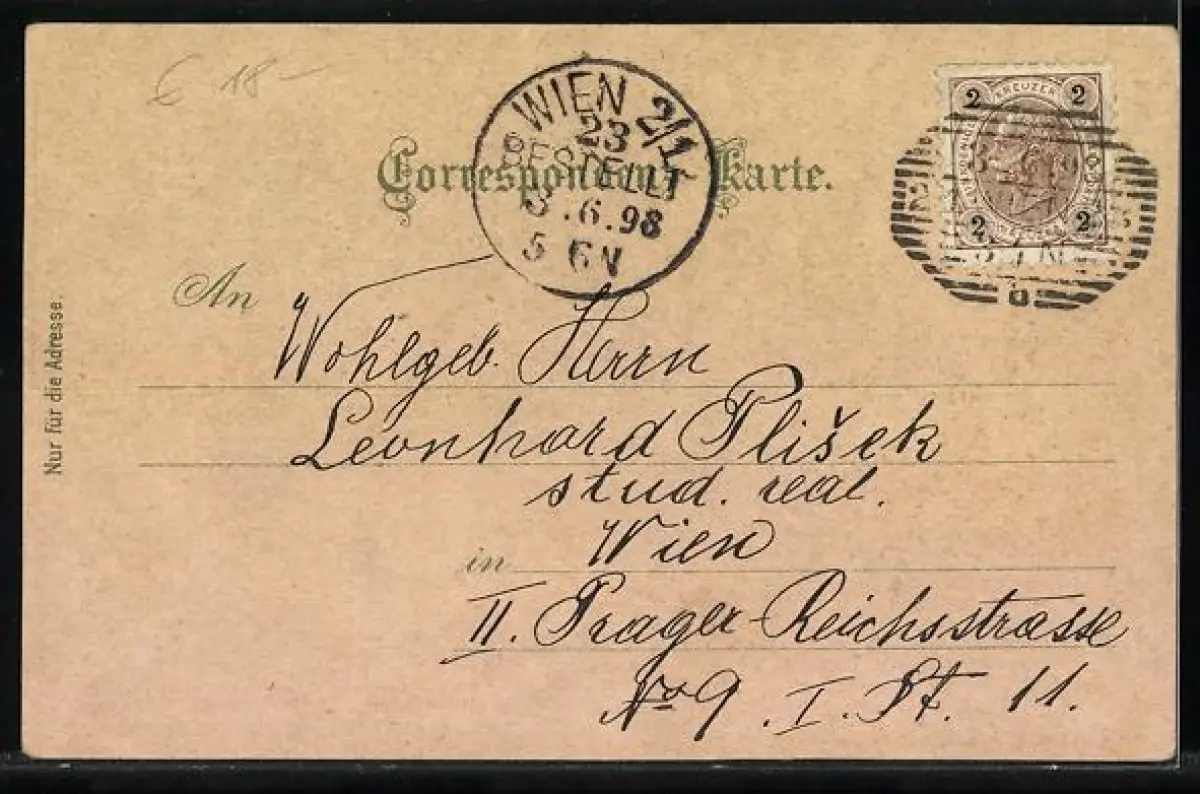 € 18-
WIEN 2/1
23
BESTELLT
3.6.98
5 6 N
2 KREUZER 2
2 2
Correspondenz-Karte.
An
Wohlgeb. Herrn
Leonhard Plišek
stud. real.
in Wien
II. Prager-Reichsstrasse
No 9. I. St. 11.
Nur für die Adresse.